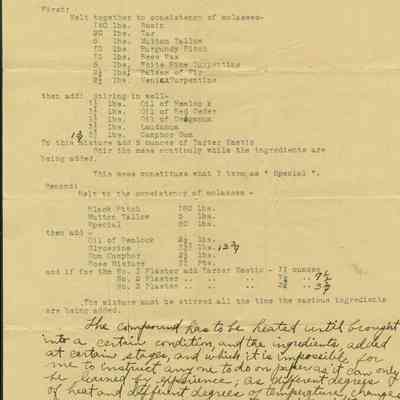 First:
Melt together to consistency of molasses-
lbs. Rosin
20 lbs. Tar
5 lbs. Mutton Tallow
10 lbs. Burgundy Pitch
10 lbs. Bees Wax
5 lbs. White Pine Turpentine
2½ lbs. Balsam of Fir
2½ lbs. Venice Turpentine
then add: Stiring in well-
lbs. Oil of Hemlock
lbs. Oil of Red Cedar
lbs. Oil of Origanum
lbs. Laudanum
lbs. Camphor Gum
To this mixture add 5 ounces of Tarter Emetic
Stir the mass continuly while the ingredients are
being added.
This mass constitutes what I term as " Special ".
Second:
Melt to the consistency of molasses -
Black Pitch lbs.
Mutton Tallow 5 lbs.
Special lbs.
then add -
Oil of Hemlock lbs.
Glycerine lbs.
Gum Camphor lbs.
Rose Mixture Pts.
and if for the No. 1 Plaster add Tarter Emetic - 11 ounces
No. 2 Plaster .. .. 7½ .. .. 7½
No. 3 Plaster .. ..
The mixture must be stirred all the time the various ingredients
are being added.
The compound has to be heated until brought
into a certain condition, and the ingredients added
at certain stages, and which it is impossible for
me to instruct any one to do on paper as it can only
be learned by experience; as different degrees
of heat and different degrees of temperature, changes